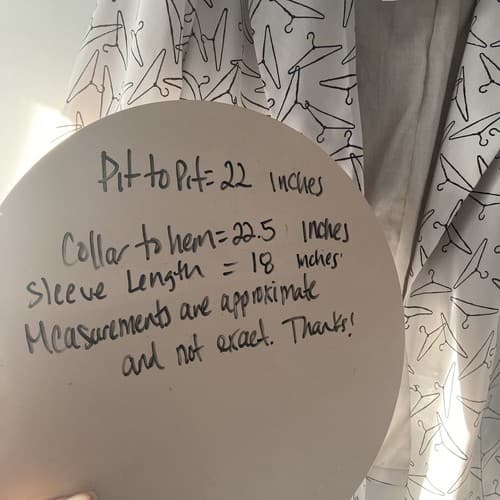 Pit to Pit = 22 Inches
Collar to hem = 22.5 Inches
Sleeve Length = 18 Inches
Measurements are approximate
and not exact. Thanks!